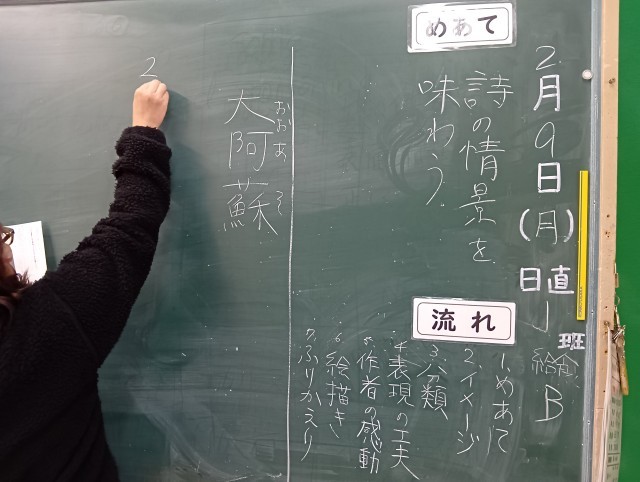 2月9日(月)
日直
1班
給食
B
めあて
詩の情景を
味わう。
流れ
1.めあて
2.イメージ
3.分類
4.表現の工夫
5.作者の感動
6.絵描き
7.ふりかえり
おおあそ
大阿蘇
2